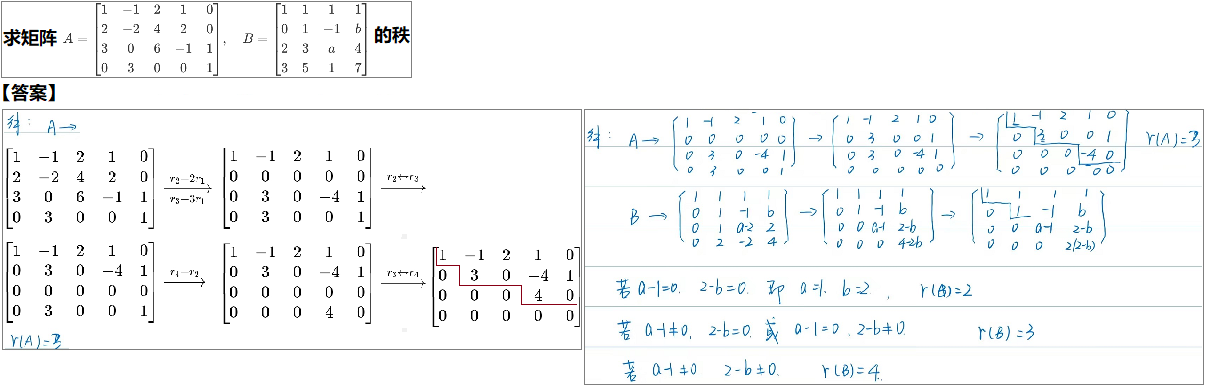 求矩阵 A = [1 −1 2 1 0; 2 −2 4 2 0; 3 0 6 −1 1; 0 3 0 0 1], B = [1 1 1 1; 0 1 −1 b; 2 3 a 4; 3 5 1 7] 的秩
【答案】
解: A→
[1 −1 2 1 0; 2 −2 4 2 0; 3 0 6 −1 1; 0 3 0 0 1] r₂−2r₁ r₃−3r₁ → [1 −1 2 1 0; 0 0 0 0 0; 0 3 0 −4 1; 0 3 0 0 1] r₂↔r₃ →
[1 −1 2 1 0; 0 3 0 −4 1; 0 0 0 0 0; 0 3 0 0 1] r₄−r₂ → [1 −1 2 1 0; 0 3 0 −4 1; 0 0 0 0 0; 0 0 0 4 0] r₃↔r₄ → [1 −1 2 1 0; 0 3 0 −4 1; 0 0 0 4 0; 0 0 0 0 0]
r(A)=3
解: A → (1 -1 2 1 0; 0 0 0 0 0; 0 3 0 -4 1; 0 3 0 0 1) → (1 -1 2 1 0; 0 3 0 0 1; 0 3 0 -4 1; 0 0 0 0 0) → (1 -1 2 1 0; 0 3 0 0 1; 0 0 0 -4 0; 0 0 0 0 0) r(A)=3
B → (1 1 1 1; 0 1 -1 b; 0 1 a-2 2; 0 2 -2 4) → (1 1 1 1; 0 1 -1 b; 0 0 a-1 2-b; 0 0 0 4-2b) → (1 1 1 1; 0 1 -1 b; 0 0 a-1 2-b; 0 0 0 2(2-b))
若 a-1=0. 2-b=0. 即 a=1. b=2 , r(B)=2
若 a-1≠0, 2-b=0. 或 a-1=0. 2-b≠0. r(B)=3
若 a-1≠0 2-b≠0. r(B)=4.